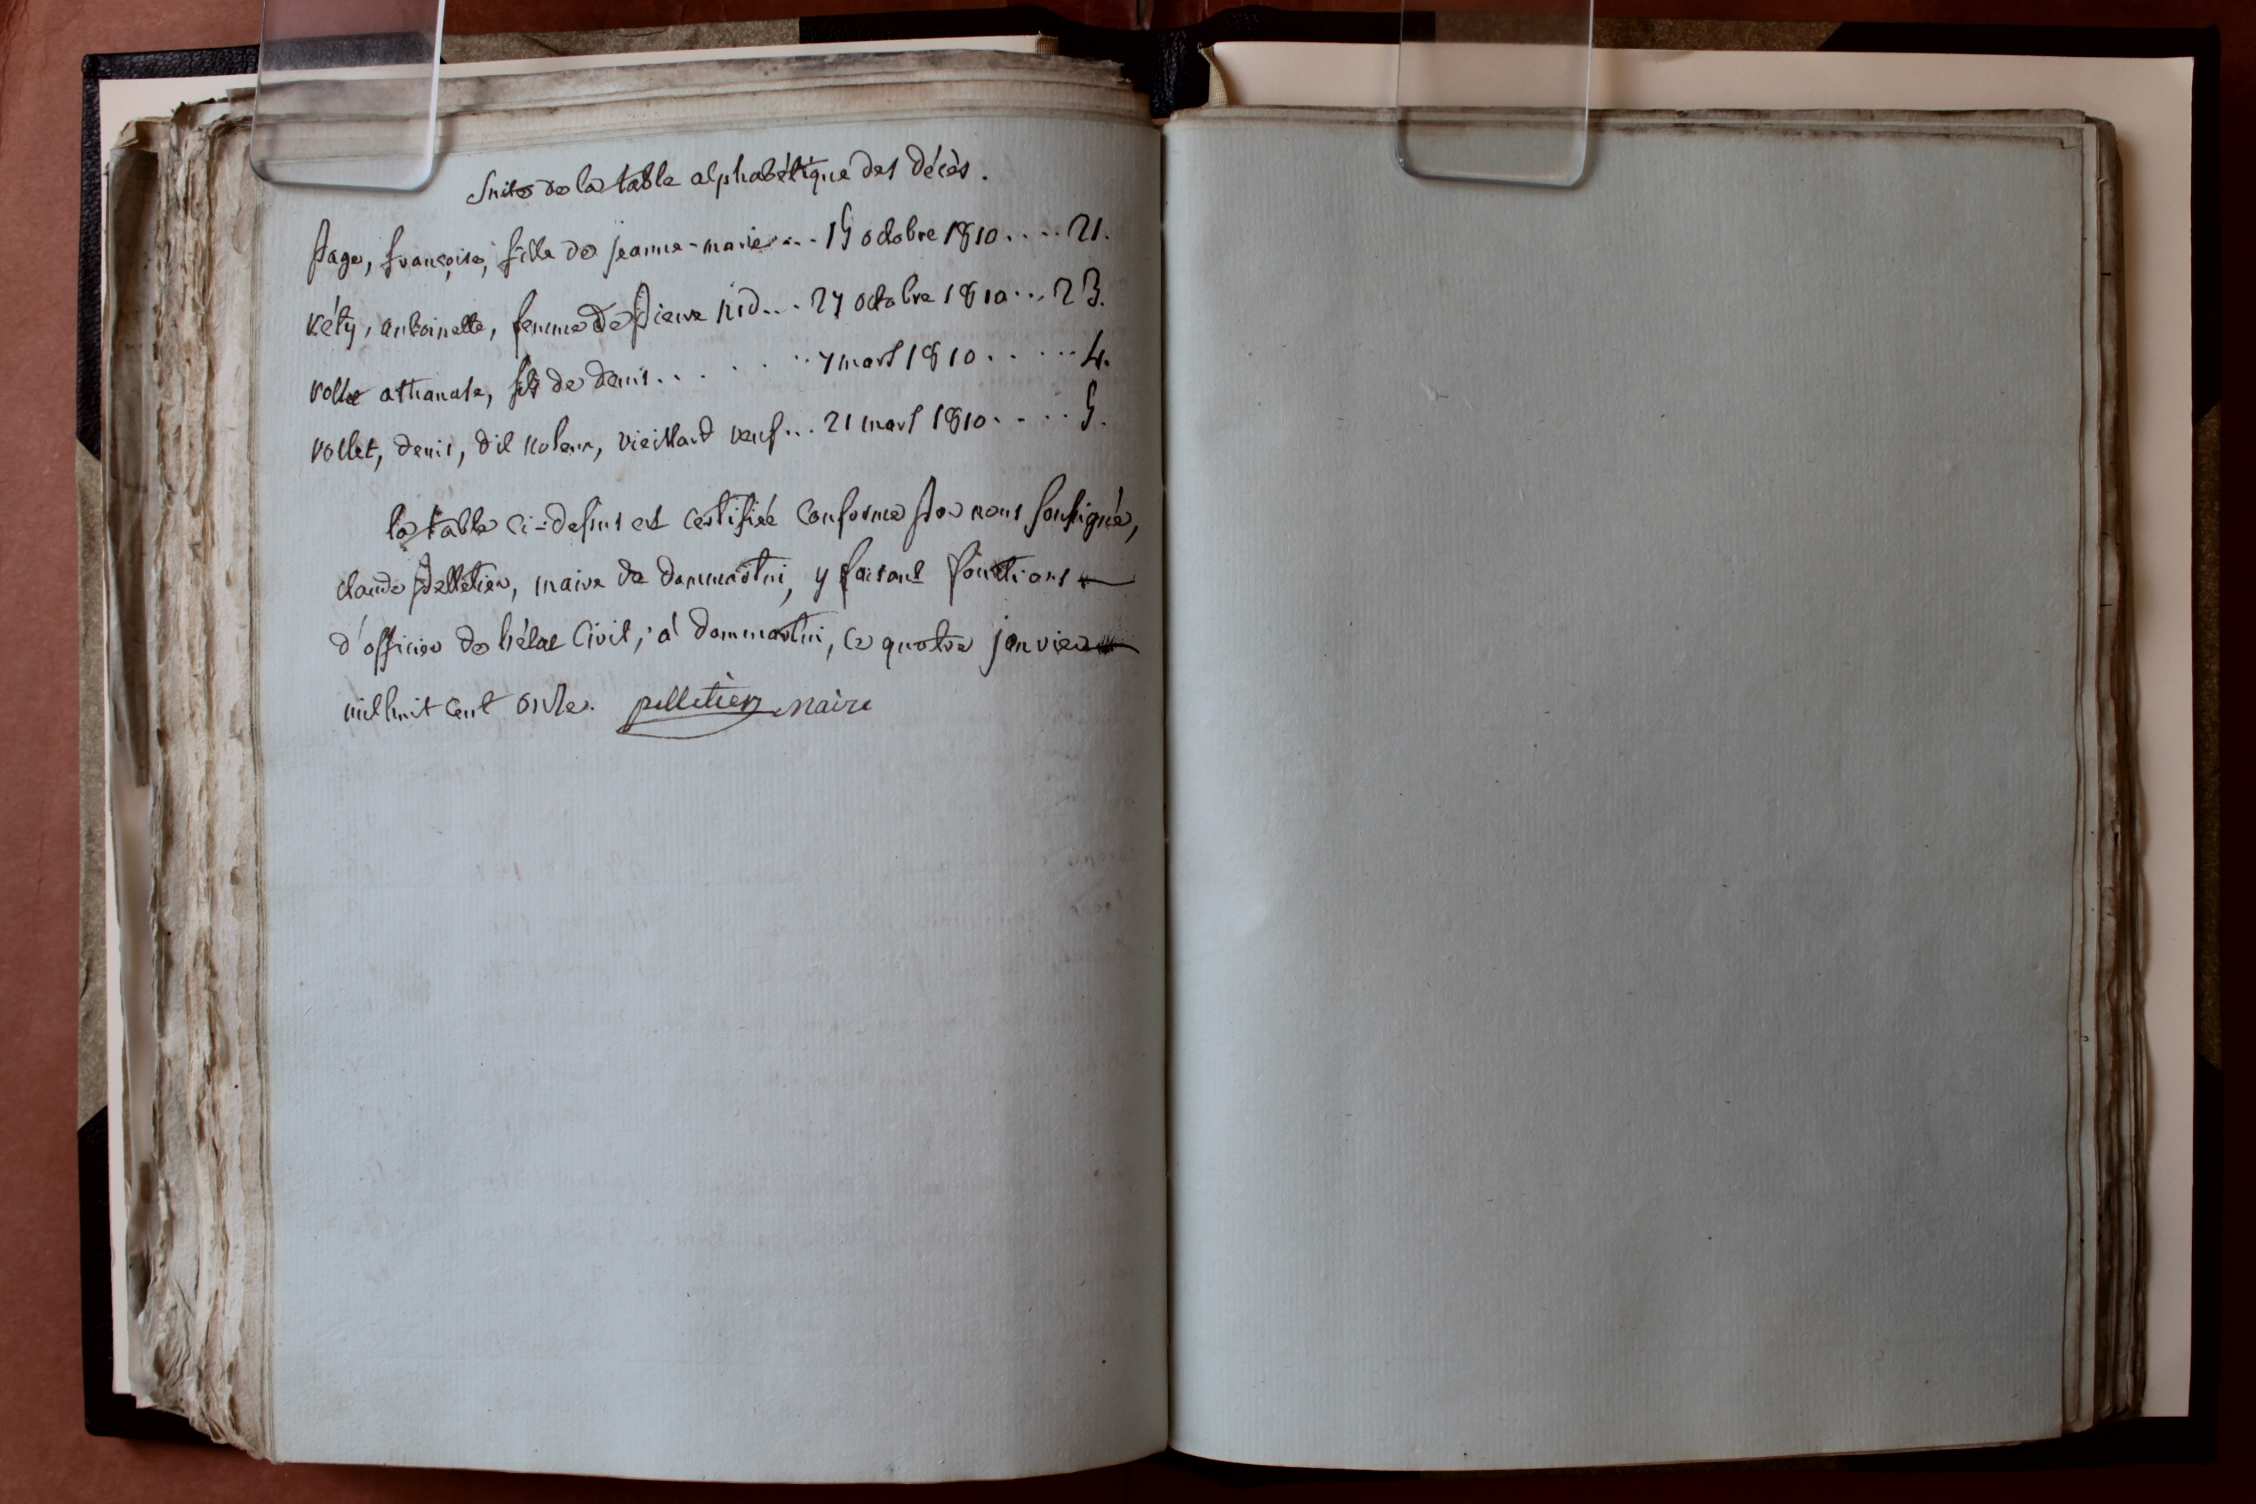 Suite de la table alphabétique des décès.
page, françoise, fille de jeanne-marie... 15 octobre 1810.... 21.
réty, antoinette, femme de pierre nid... 27 octobre 1810... 23.
rollet athanase, fils de denis....... 7 mars 1810..... 4.
rollet, denis, dit, vieillard veuf... 21 mars 1810.... 5.
la table ci-dessus est certifiée conforme par nous soussigné,
claude pelletier, maire de dommartin, y faisant fonctions
d'officier de l'état civil; à dommartin, ce quatre janvier
mil huit cent onze. pelletier maire